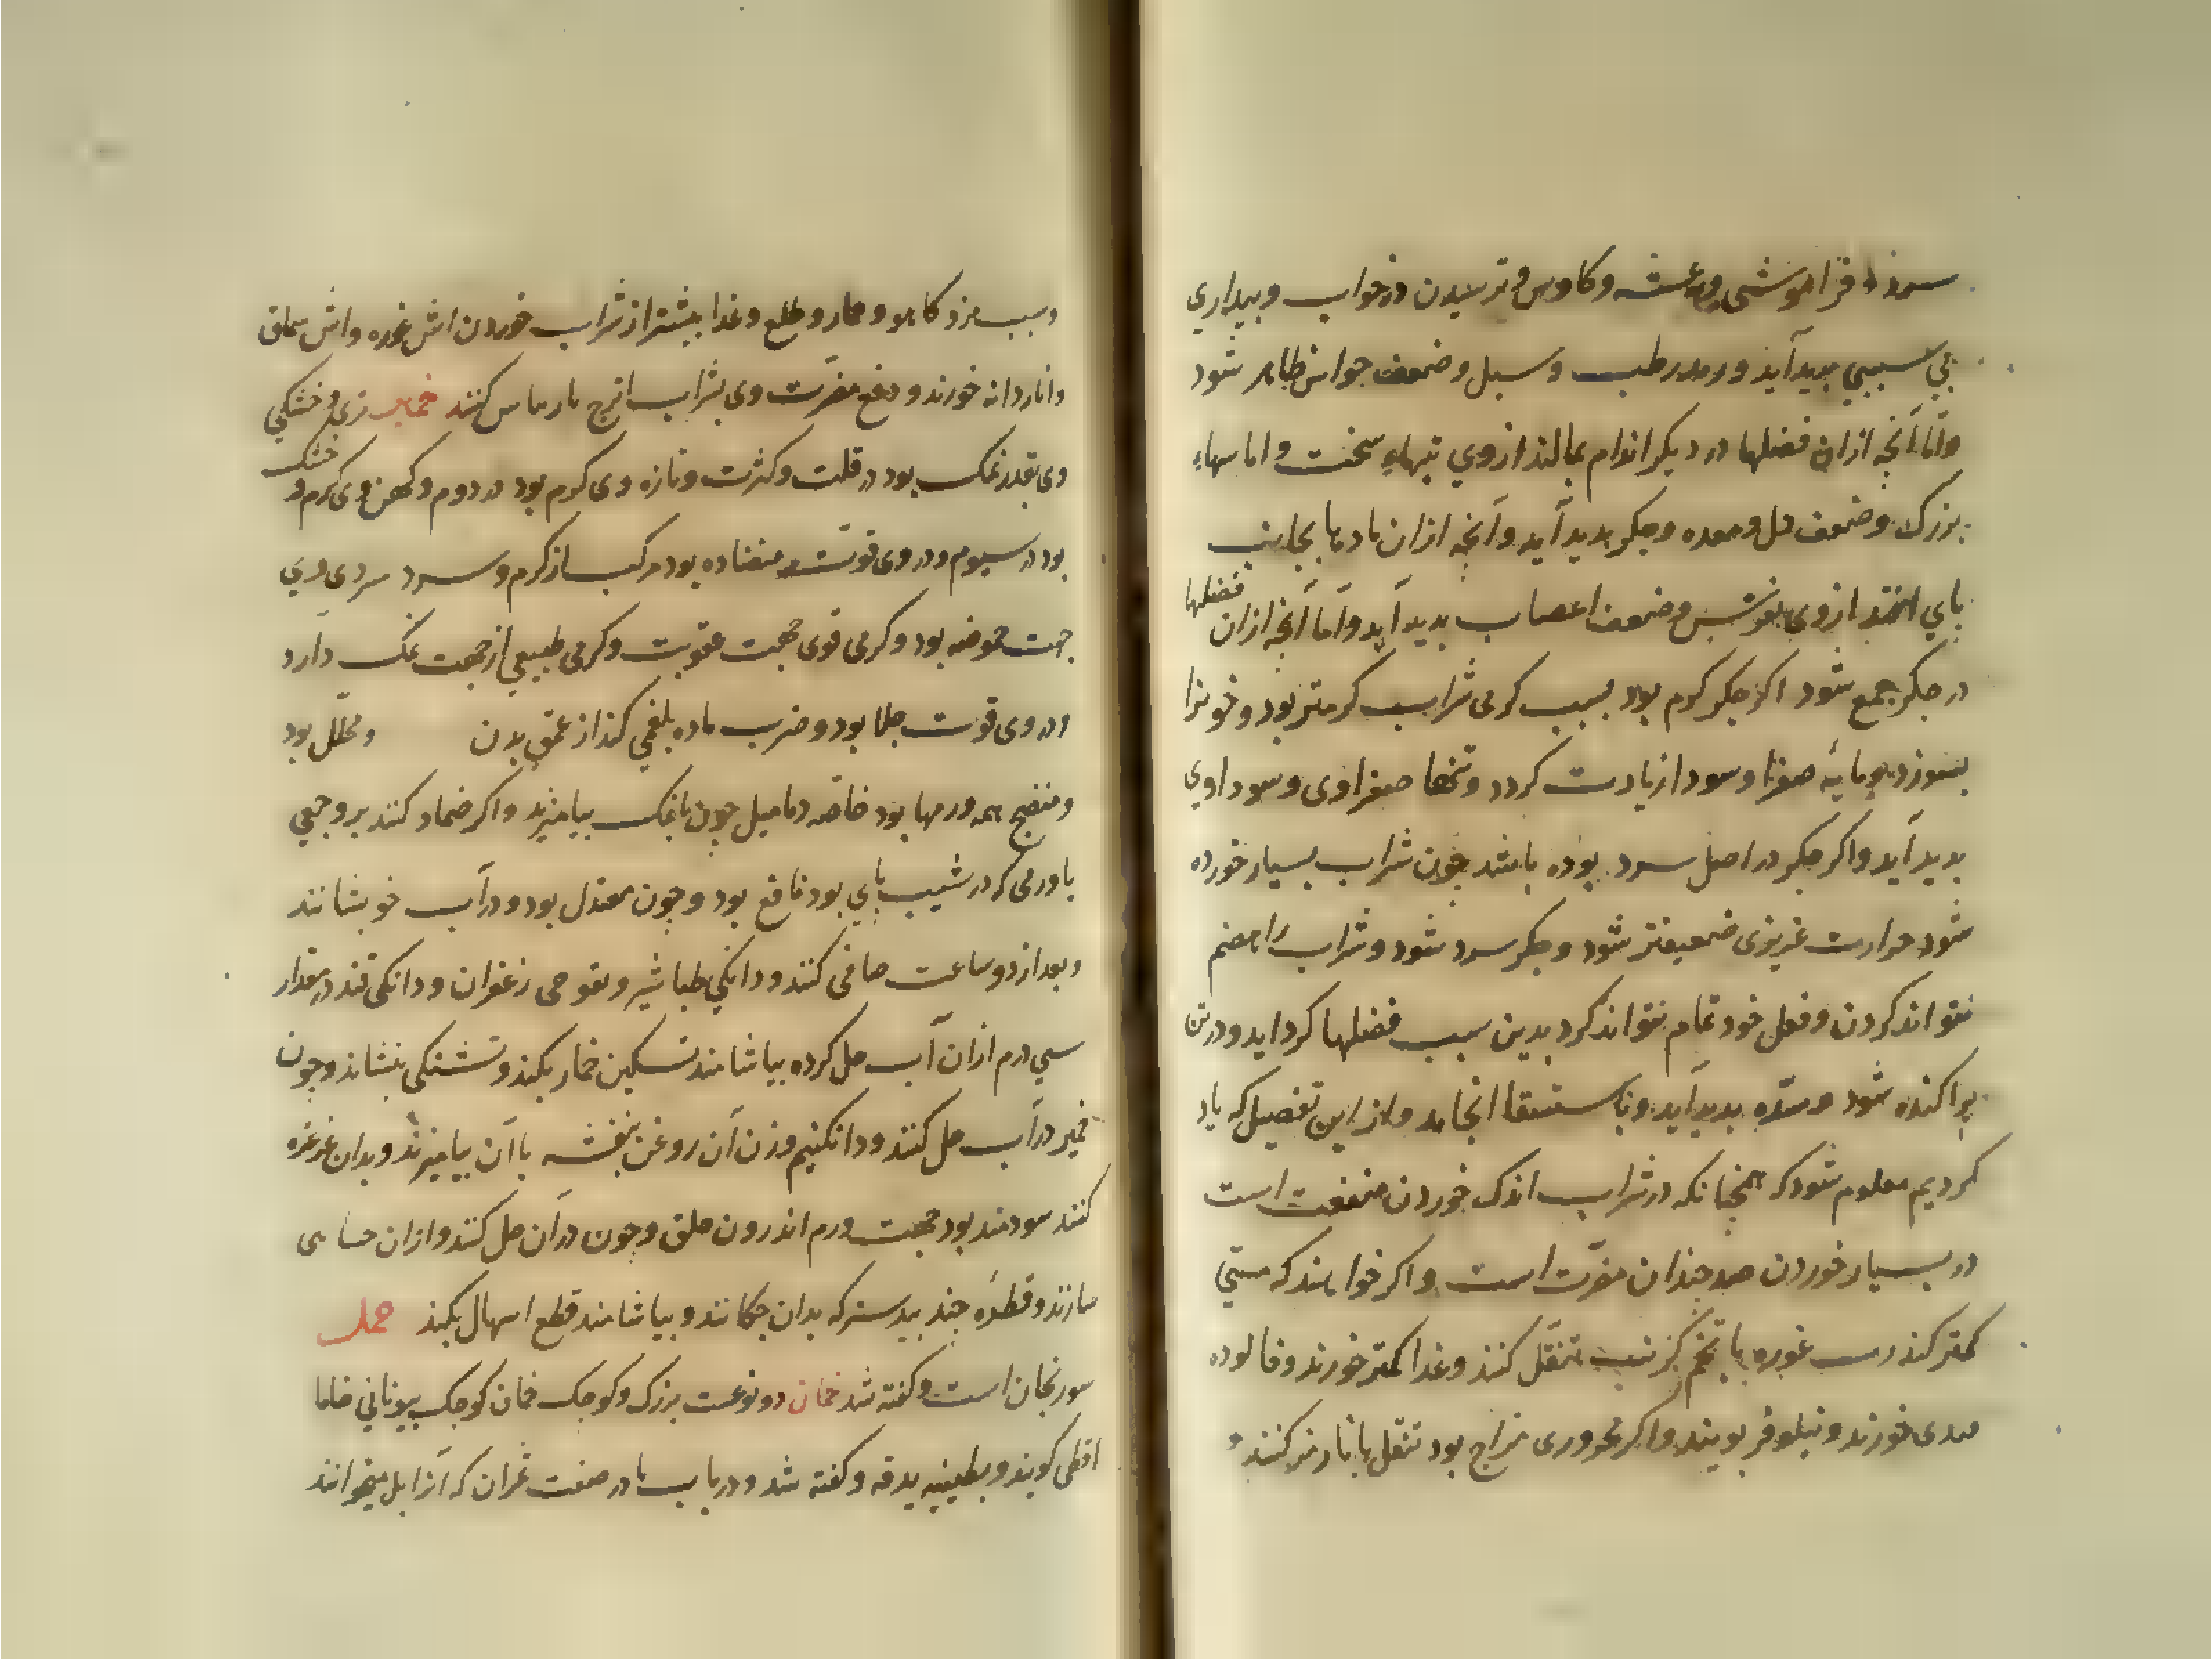 سرد و فراموشی و رعشه و کاوس و ترسیدن در خواب و بیداری
بی سببی بدید آید و رمد رطب و سبل و ضعف حواس ظاهر شود
و اما آنچه ازان فضلها در دیکر اندام بمالند از وی تبهاء سخت و اماسهاء
بزرک و ضعف دل و معده و جکر بدید آید و آنچه ازان مادها بجانب
بای افتد از وی نقرس و ضعف اعصاب بدید آید و اما آنچه ازان فضلها
در جکر جمع شود اکر جکر کرم بود بسبب کرمی شراب کرمتر بود و خونرا
بسوزد و مایه صفرا و سودا زیادت کردد و تبها صفراوی و سوداوی
بدید آید و اکر جکر در اصل سرد بوده باشد جون شراب بسیار خورده
شود حرارت غریزی ضعیفتر شود و جکر سرد شود و شراب را هضم
نتواند کردن و فعل خود تمام نتواند کرد بدین سبب فضلها کرد اید و در تن
براکنده شود و سده بدید آید و باستسقا انجامد و از این تفصیل که یاد
کردیم معلوم شود که همجنانکه در شراب اندک خوردن منفعت است
در بسیار خوردن صد جندان مضرت است و اکر خواهند که مستی
کمتر کند رب غوره با تخم کرنب تنقل کنند و غدا کمتر خورند و فالوده
خورند و نیلوفر بویند و اکر محروری مزاج بود تنقل بانار مز کنند و
و سیب مز و کاهو و خیار و طلع و غدا بیشتر از شراب خوردن اش غوره و اش سماق
و اناردانه خورند و دفع مضرت وی بشراب اترج کنند خمیر تری و خشکی
وی بقدر نمک بود در قلت و کثرت و تازه وی کرم بود در دوم و کهن وی کرم و خشک
بود در سیوم و در وی قوت متضاده بود مرکب از کرم و سرد سردی وی
جهت حموضه بود و کرمی قوی جهت عفونت و کرمی طبیعی از جهت نمک دارد
و در وی قوت جلا بود و ضرب ماده بلغمی کند از عمق بدن و محلل بود
و منضج همه ورمها بود خاصه دمامیل جون با نمک بیامیزند و اکر ضماد کنند بر وجعی
یا ورمی که در شیب بای بود نافع بود و جون معتدل بود و در آب خوبشانند
و بعد از دو ساعت صافی کنند و دانکی طباشیر و زعفران و دانکی قند در مقدار
سی درم ازان آب حل کرده بیاشامند تسکین خمار بکند و تشنکی بنشاند و جون
خمیر در آب حل کنند و دانکنیم وزن آن روغن بنفشه با آن بیامیزند و بدان غرغره
کنند سودمند بود جهت ورم اندرون حلق و جون در آن حل کنند و ازان حسایی
سازند و قطره جند بید سترکه بدان جکانند و بیاشامند قطع اسهال بکند خمل
سورنجان است و کفته شد خمان دو نوعست بزرک و کوجک خمان کوجک بیونانی خاما
اقطی کویند و یدقه و کفته شد و در باب با در صفت ثمر ان که آنرا بل میخوانند